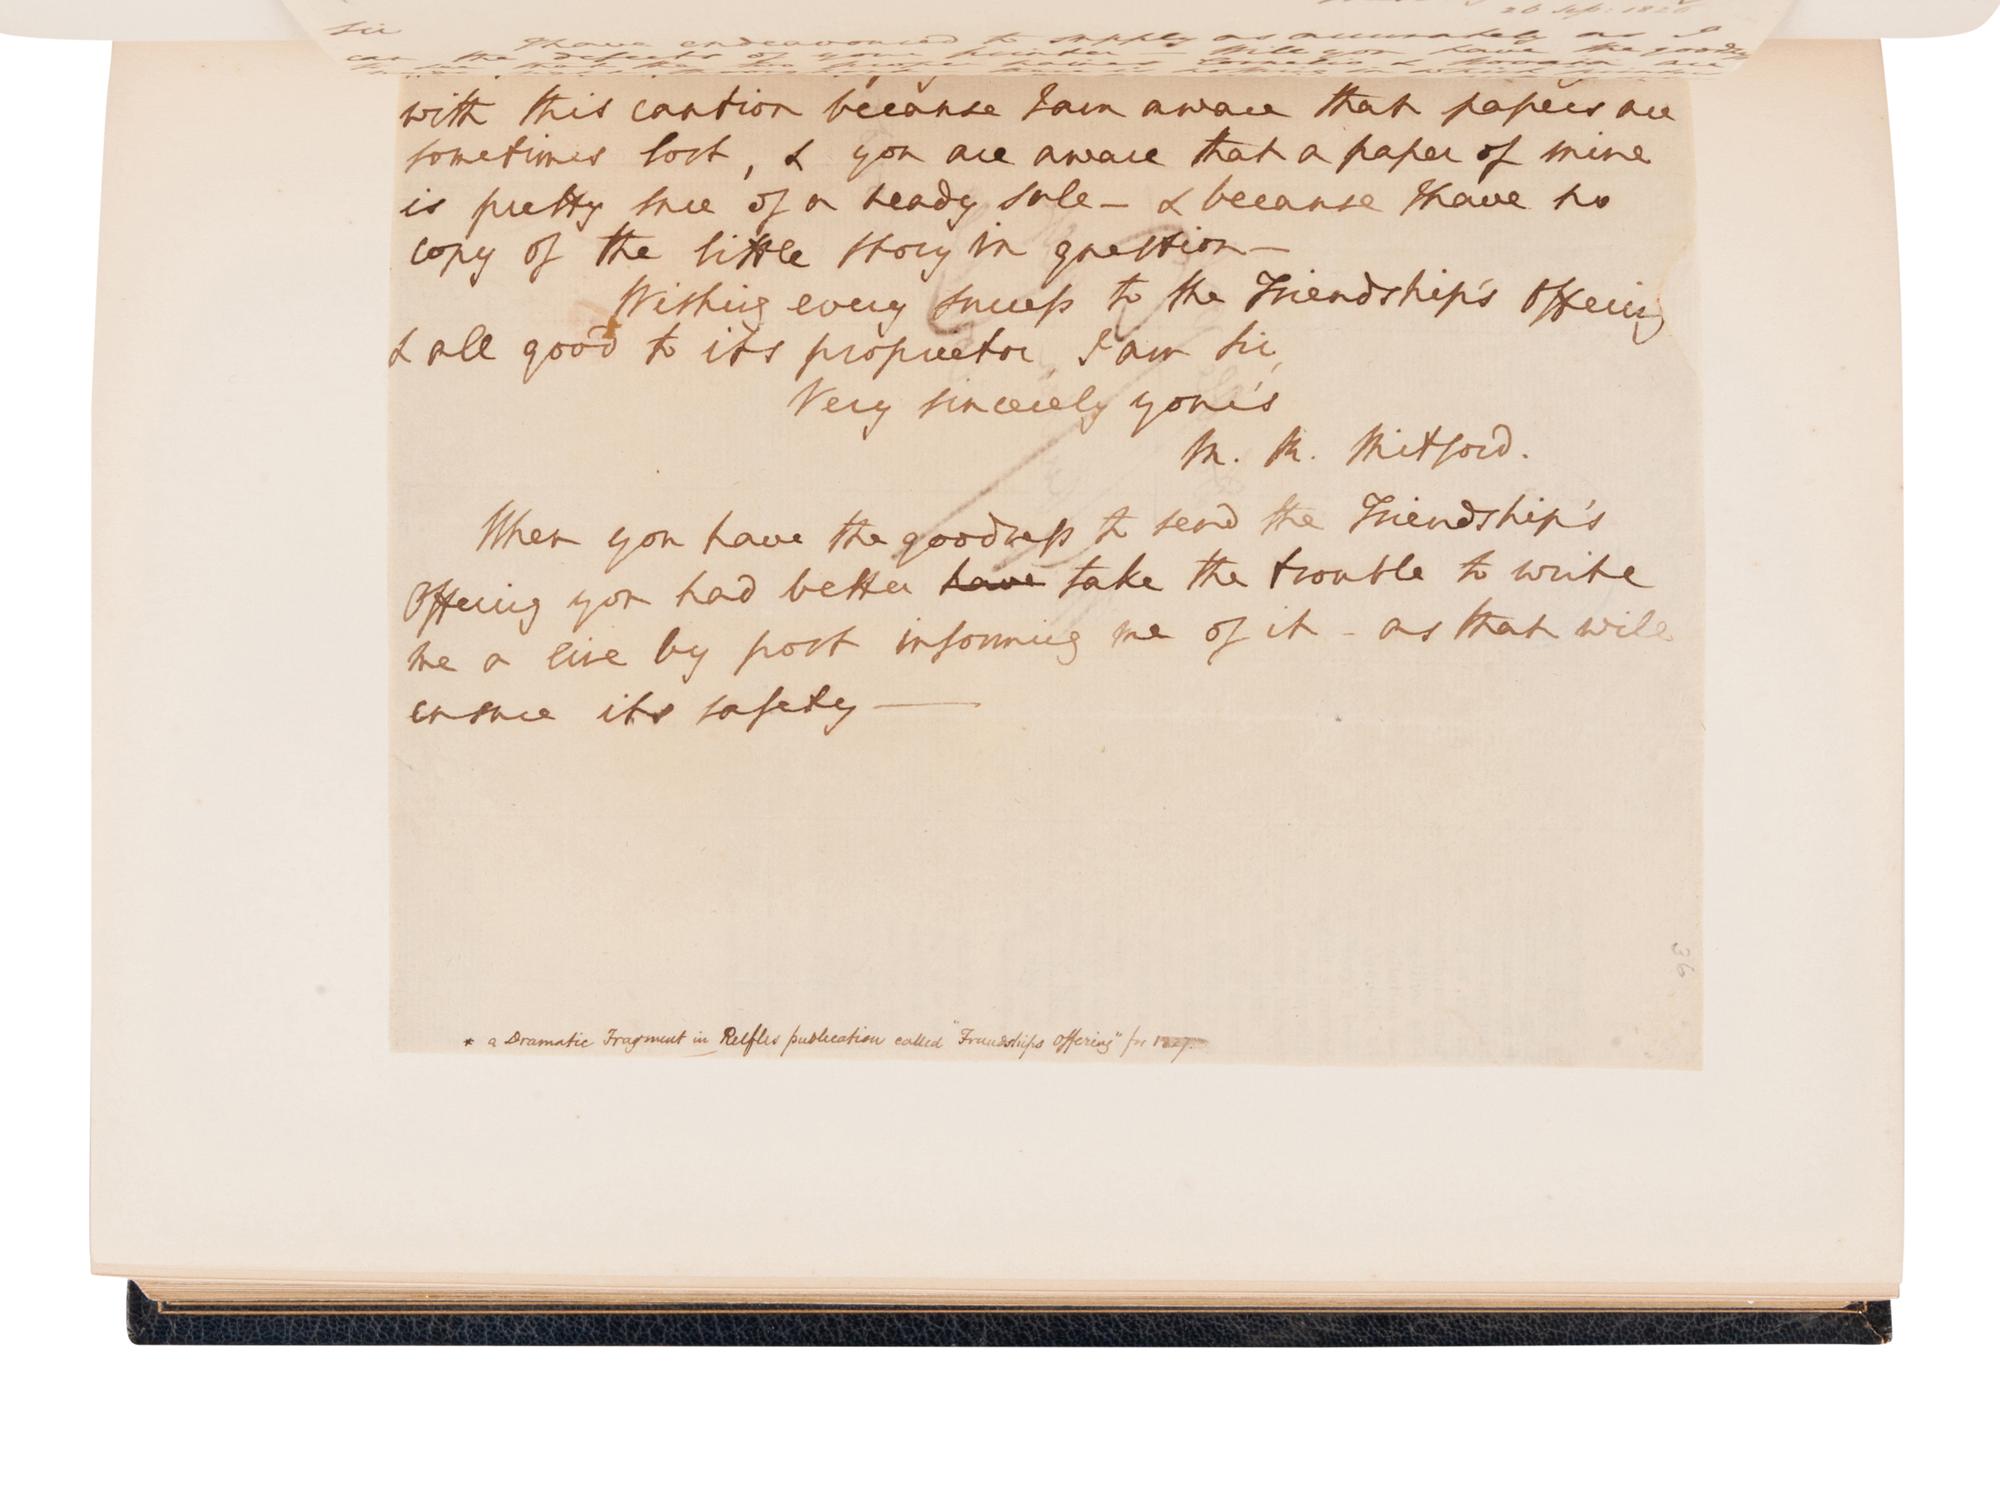 26 Sep: 1826
Sir
I have endeavoured to supply as accurately as I
can the defects of your printer – Will you have the goodness
with this caution because I am aware that papers are
sometimes lost, & you are aware that a paper of mine
is pretty sure of a ready sale – & because I have no
copy of the little story in question –
Wishing every success to the Friendship's Offering
& all good to its proprietor, I am Sir,
Very sincerely your's
M. R. Mitford.
When you have the goodness to send the Friendship's
Offering you had better have take the trouble to write
me a line by post informing me of it – as that will
ensure its safety —
* a Dramatic Fragment in Relfes publication called "Friendships offering" for 1827.
36